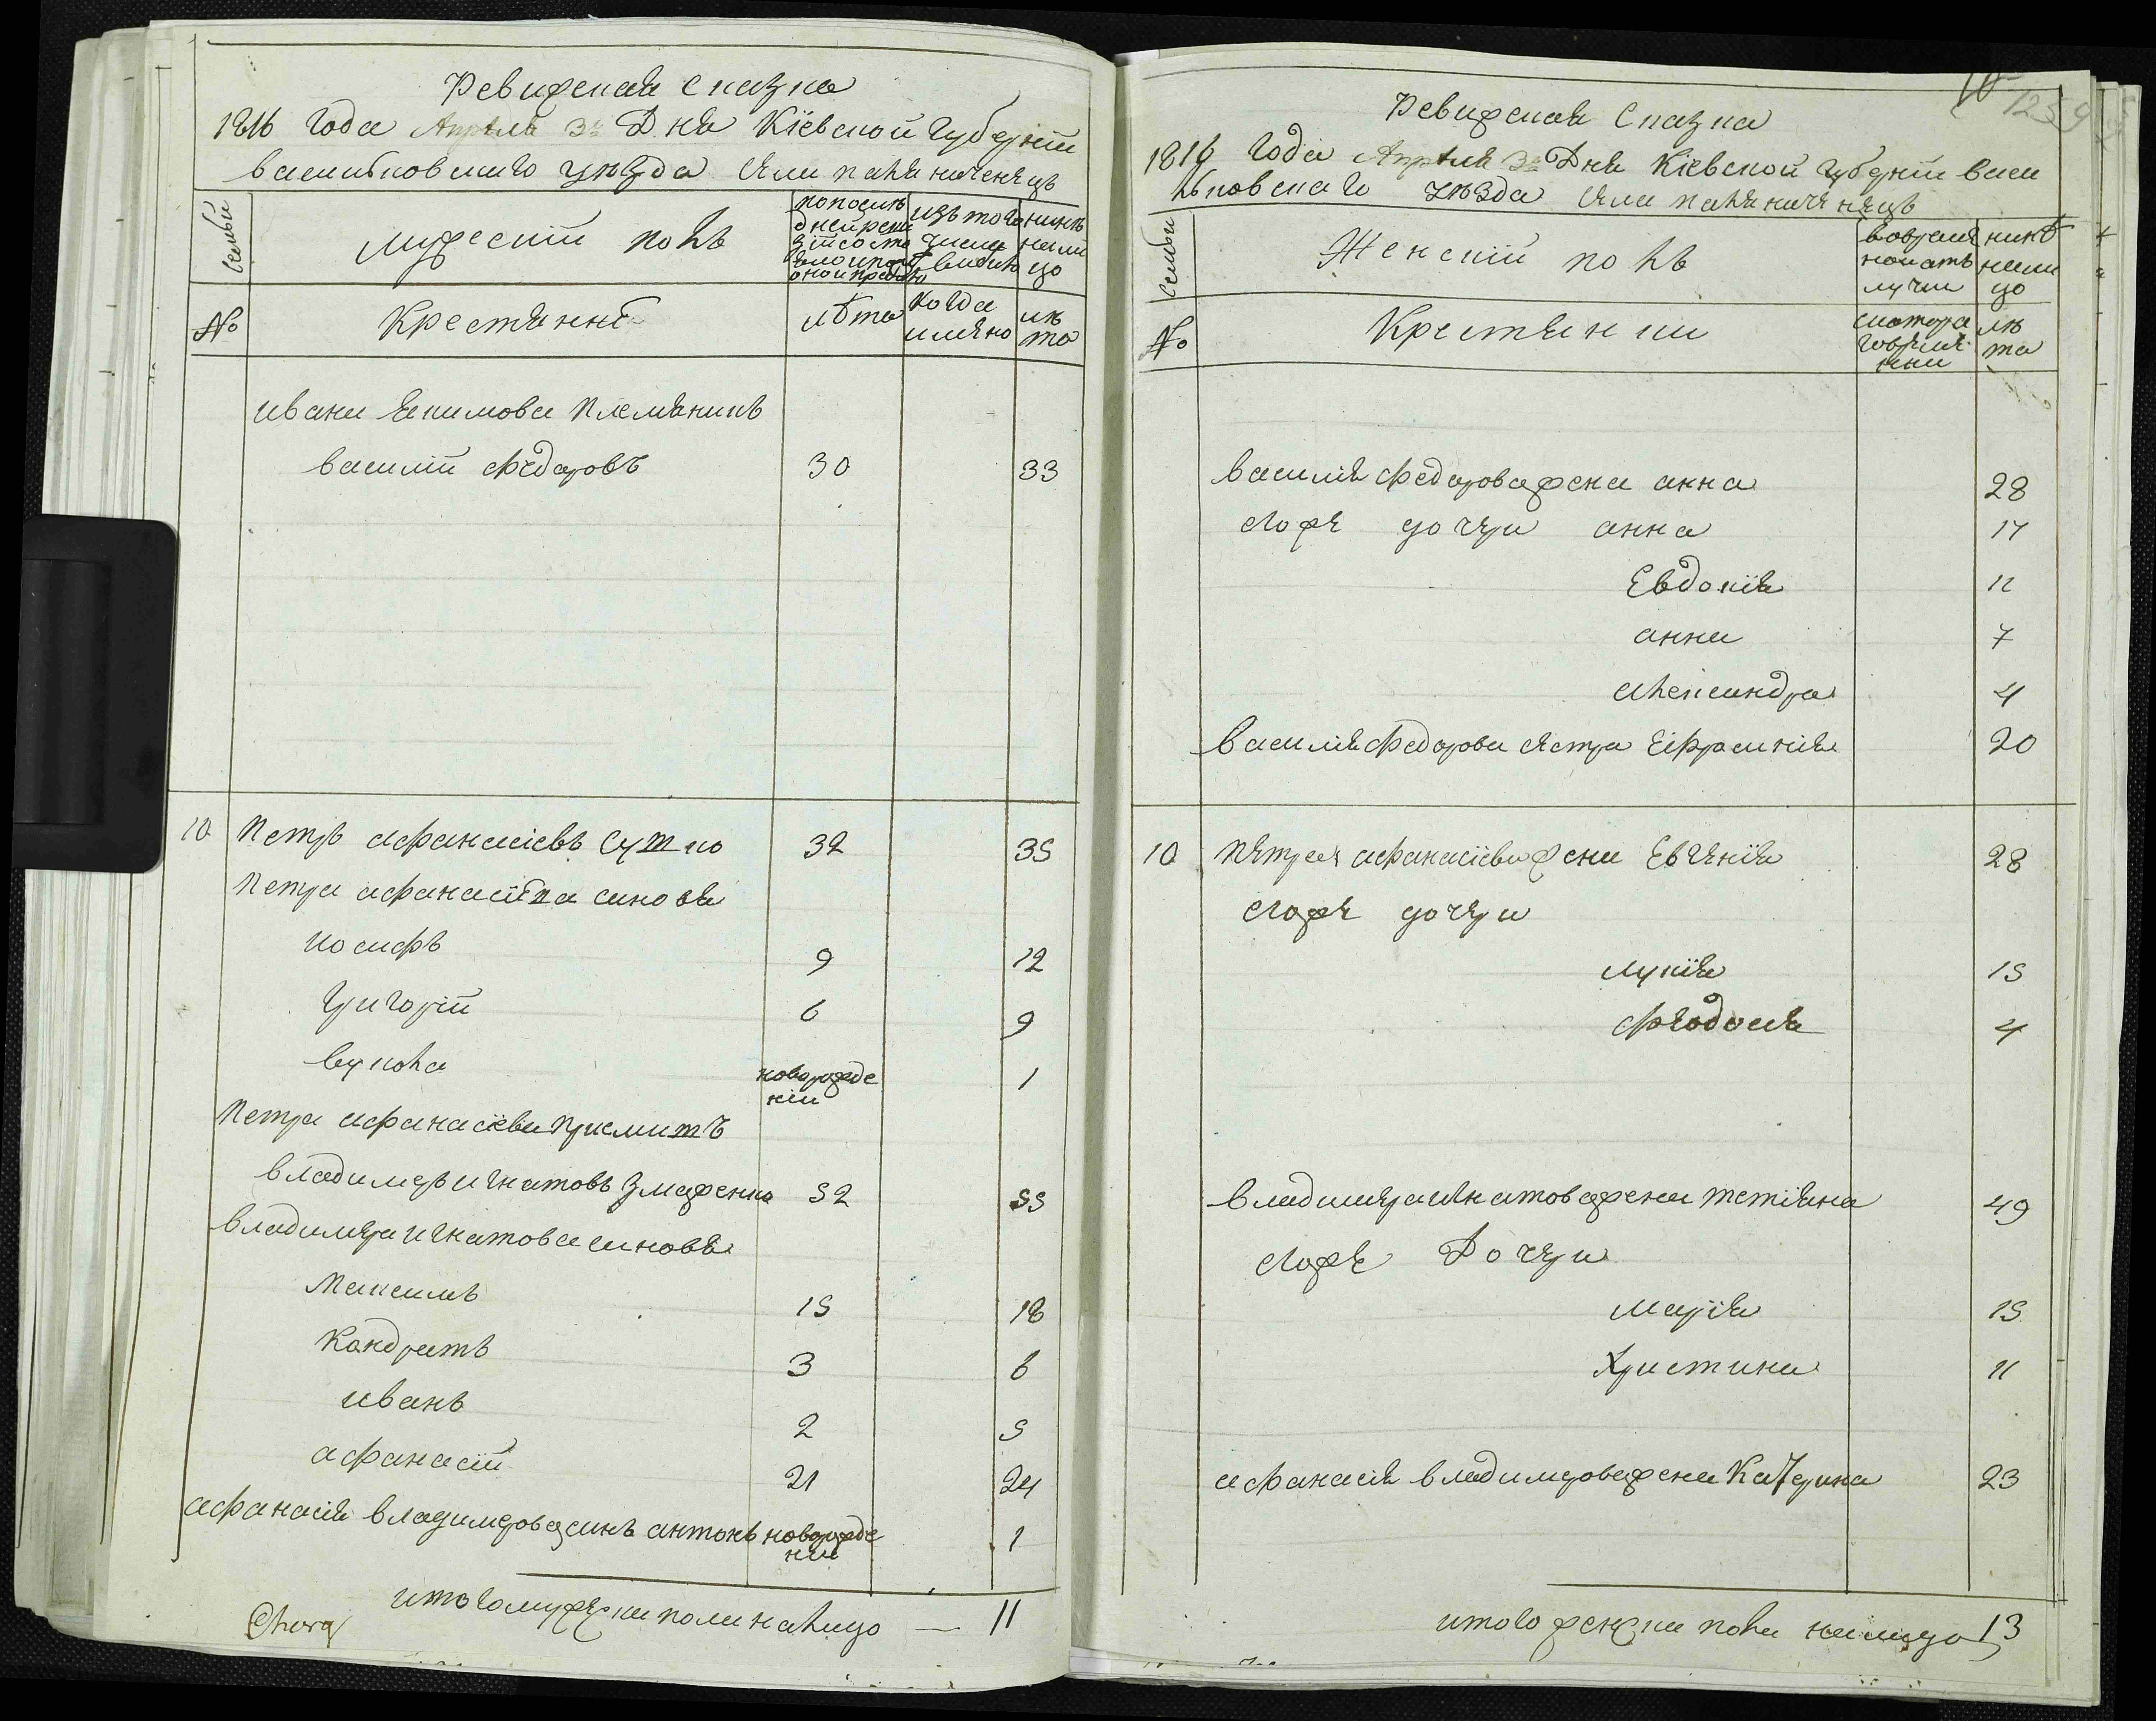 Ревизская Сказка
1816 года Апреля 3го Дня Кіевской Губерніи
василковскаго уезда села
семьи
мужескій полъ
№
Крестяння
лѣта
когда
имяно
лѣ
та
ивана Якимова племяникъ
василій федоровъ 30 33
10 Петръ афанасіевъ 32 35
Петра афанасіева синовя
иосифъ 9 12
Григорій 6 9
вукола новорожде
ній 1
Петра афанасіева приемитъ
владимеръ игнатовъ Змаженко 52 55
владимера игнатова синовя
Максимъ 15 18
Кондратъ 3 6
иванъ 2 5
афанасій 21 24
афанасія владимерова синъ антонъ новорожде
ній 1
итого мужеска пола налицо — 11
10
1239
Ревизская Сказка
1816 года Апреля 3го Дня Кіевской губерніи васи
лковскаго уезда села
семьи
Женскій полъ
во время
нинѣ
нали
цо
№
Крестянки
лѣ
та
василія федорова жена анна 28
егоже дочери анна 17
Евдокія 11
анна 7
александра 4
василія федорова сестра Ефросинія 20
10 петра афанасіева жена Евгенія 28
егоже дочери
лукія 15
феодосія 4
владимера игнатова жена тетіяна 49
егоже Дочери
марія 15
Христина 11
афанасія владимерова жена Катерина 23
итого женска пола налицо 13